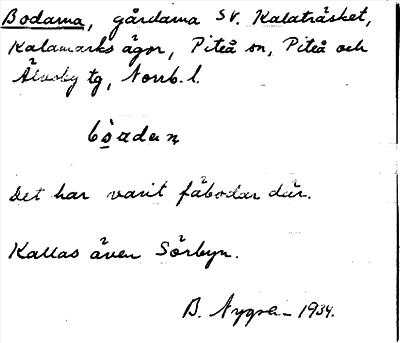 Bodarna, gårdarna SV. Kalaträsket,
Kalamarks ägor, Piteå sn, Piteå och
Älvsby tg, Norrb. l.
Det har varit fäbodar där.
Kallas även Sörbyn.
B. 1934.